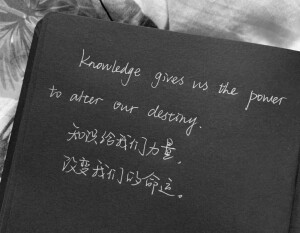 Knowledge gives us the power
to alter our destiny.
知识给我们力量，
改变我们的命运。